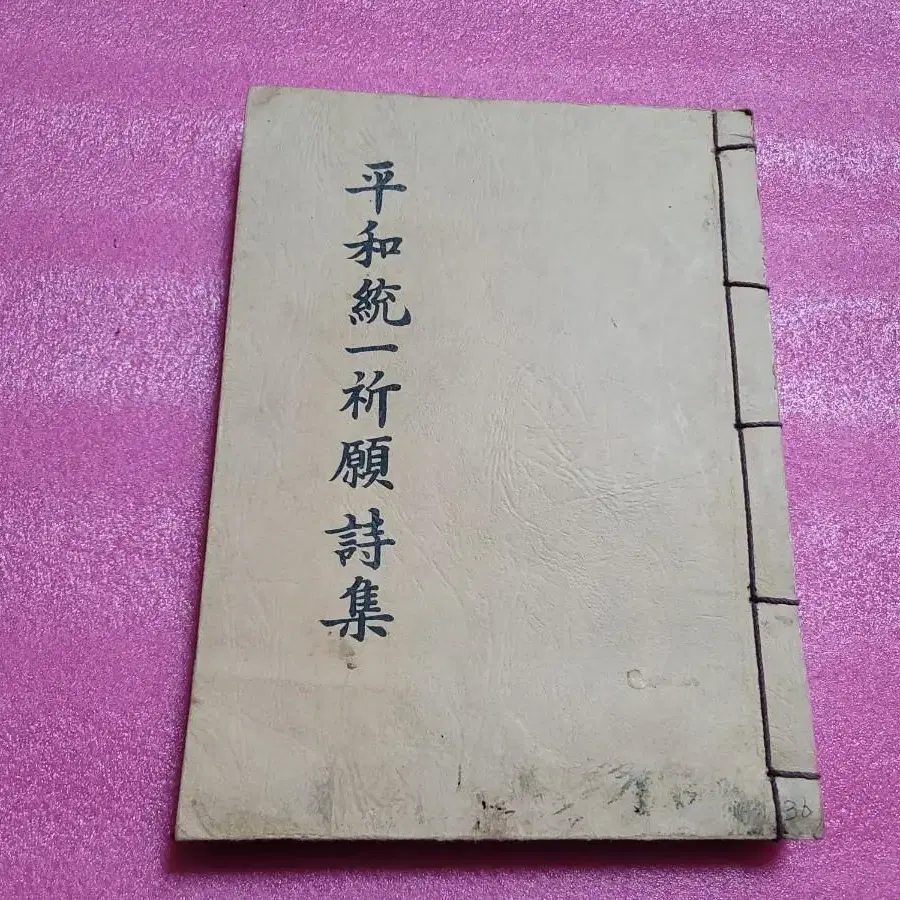 平和統一祈願詩集